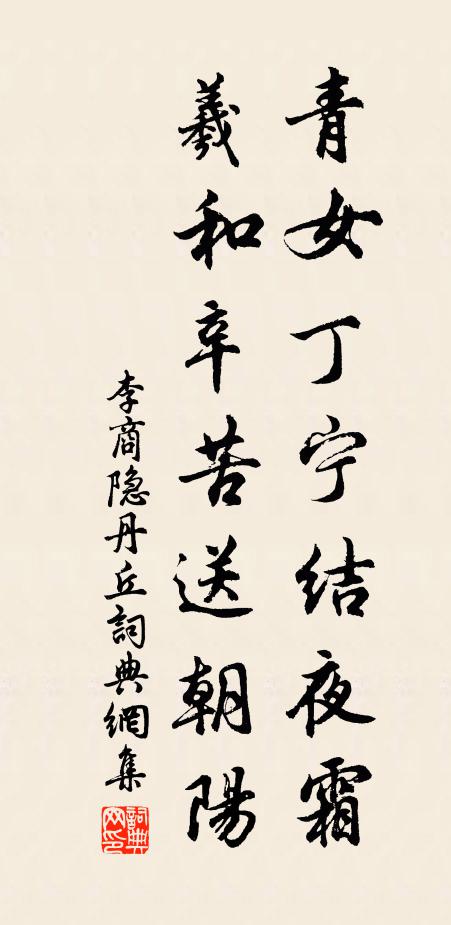 青女丁宁结夜霜
羲和辛苦送朝陽
李商隐丹丘詞典網集
詞典
网印